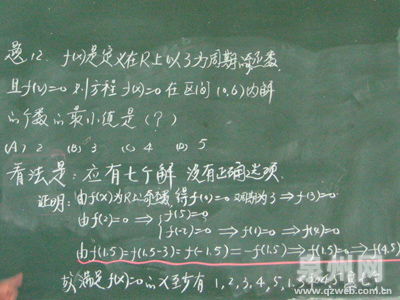 题12. f(x)是定义在R上以3为周期的奇函数
且f(2)=0 则方程f(x)=0在区间(0,6)内解
的个数的最小值是(?)
(A) 2 (B) 3 (C) 4 (D) 5
看法是: 应有七个解 没有正确选项.
证明: 由f(x)为R上奇函数 得f(0)=0 又周期为3 ⇒ f(3)=0
由f(2)=0 ⇒ { f(5)=0
f(-2)=0 ⇒ f(1)=0 ⇒ f(4)=0
由f(1.5)=f(1.5-3)=f(-1.5)=-f(1.5) ⇒ f(1.5)=0 ⇒ f(4.5)
故满足f(x)=0的x至少有 1, 2, 3, 4, 5, 1.5
泉州网
www.qzweb.com.cn